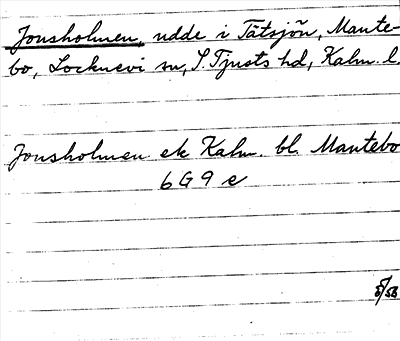 Jonsholmen, udde i Tätsjön, Mante-
bo, Locknevi sn, S. Tjusts hd, Kalm. l.
Jonsholmen ek Kalm. bl. Mantebo
6G9e
5/56